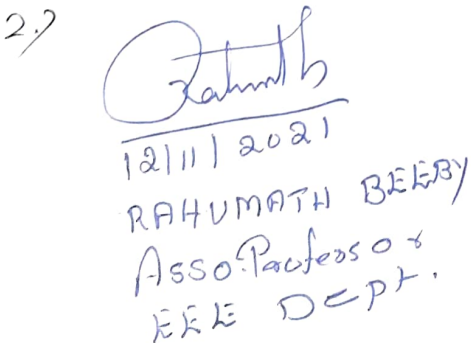 2.)
Rahmth
12/11/2021
RAHUMATH BEEBY
Asso.Professor
EEE Dept.